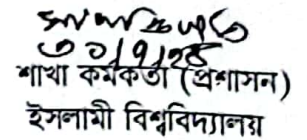 ৩০/৭/২৪
শাখা কর্মকর্তা (প্রশাসন)
ইসলামী বিশ্ববিদ্যালয়